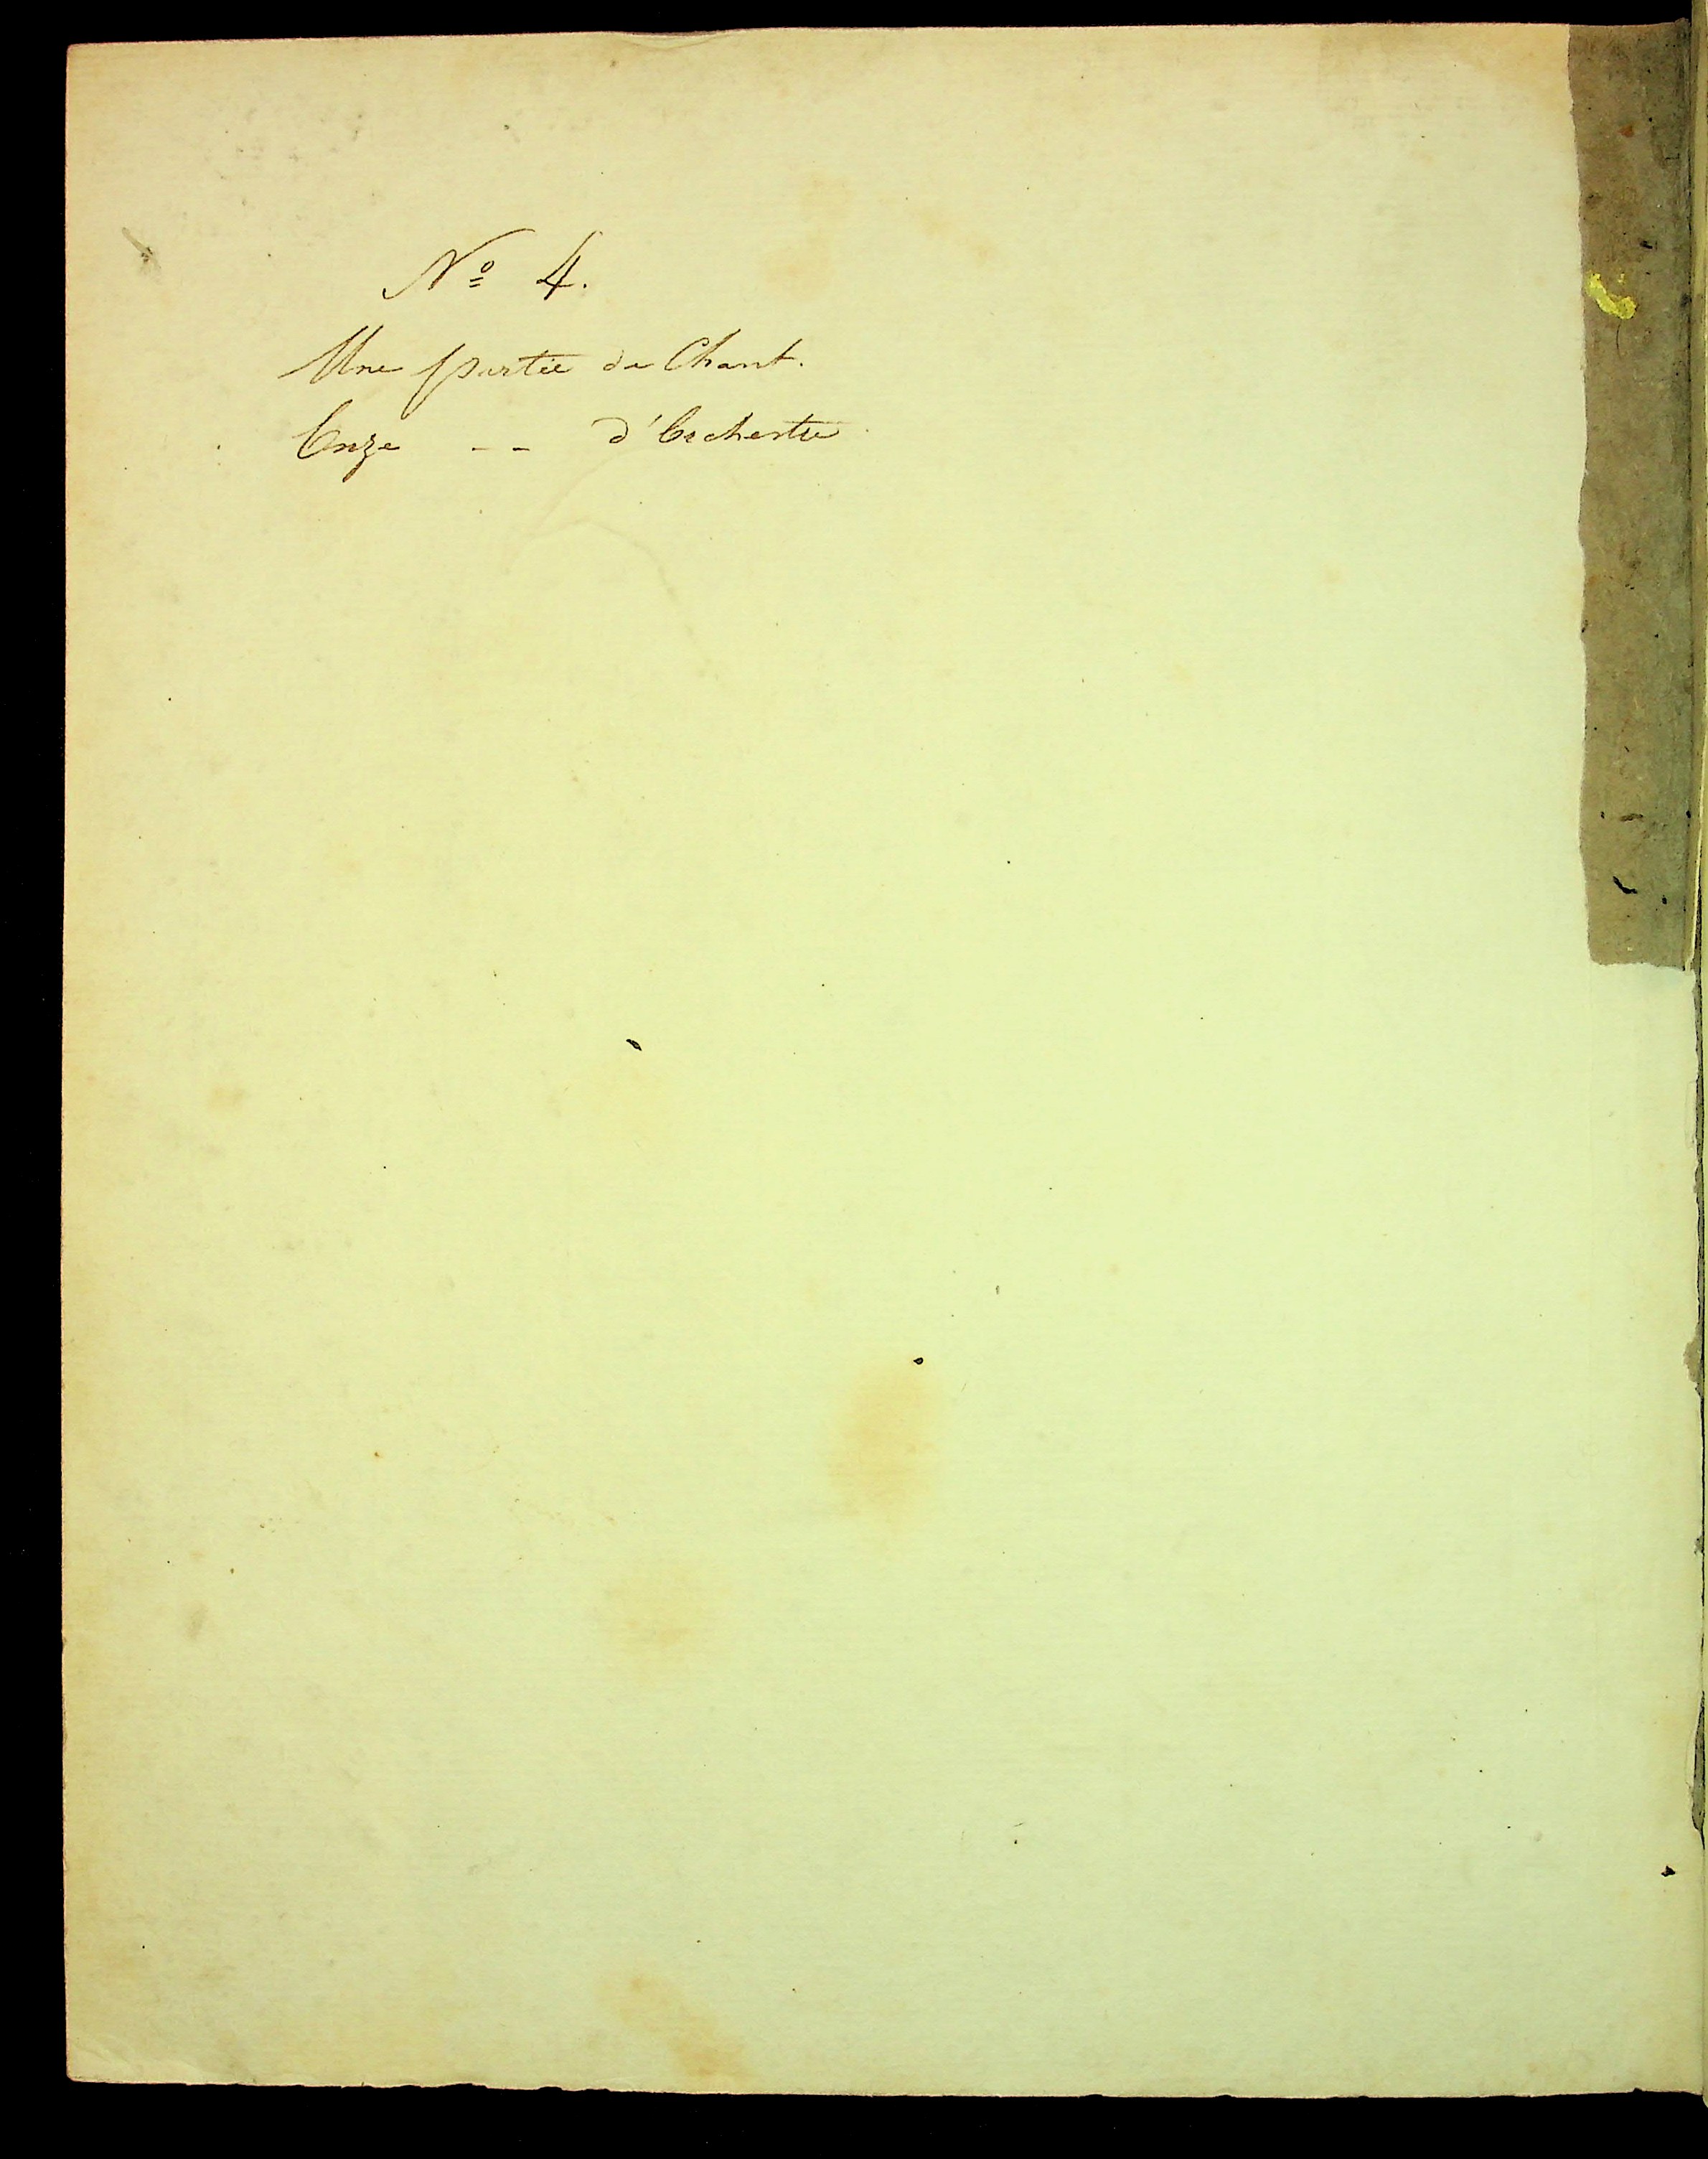 Nº 4.
Une partie de Chant.
Onze -- d'Orchestre